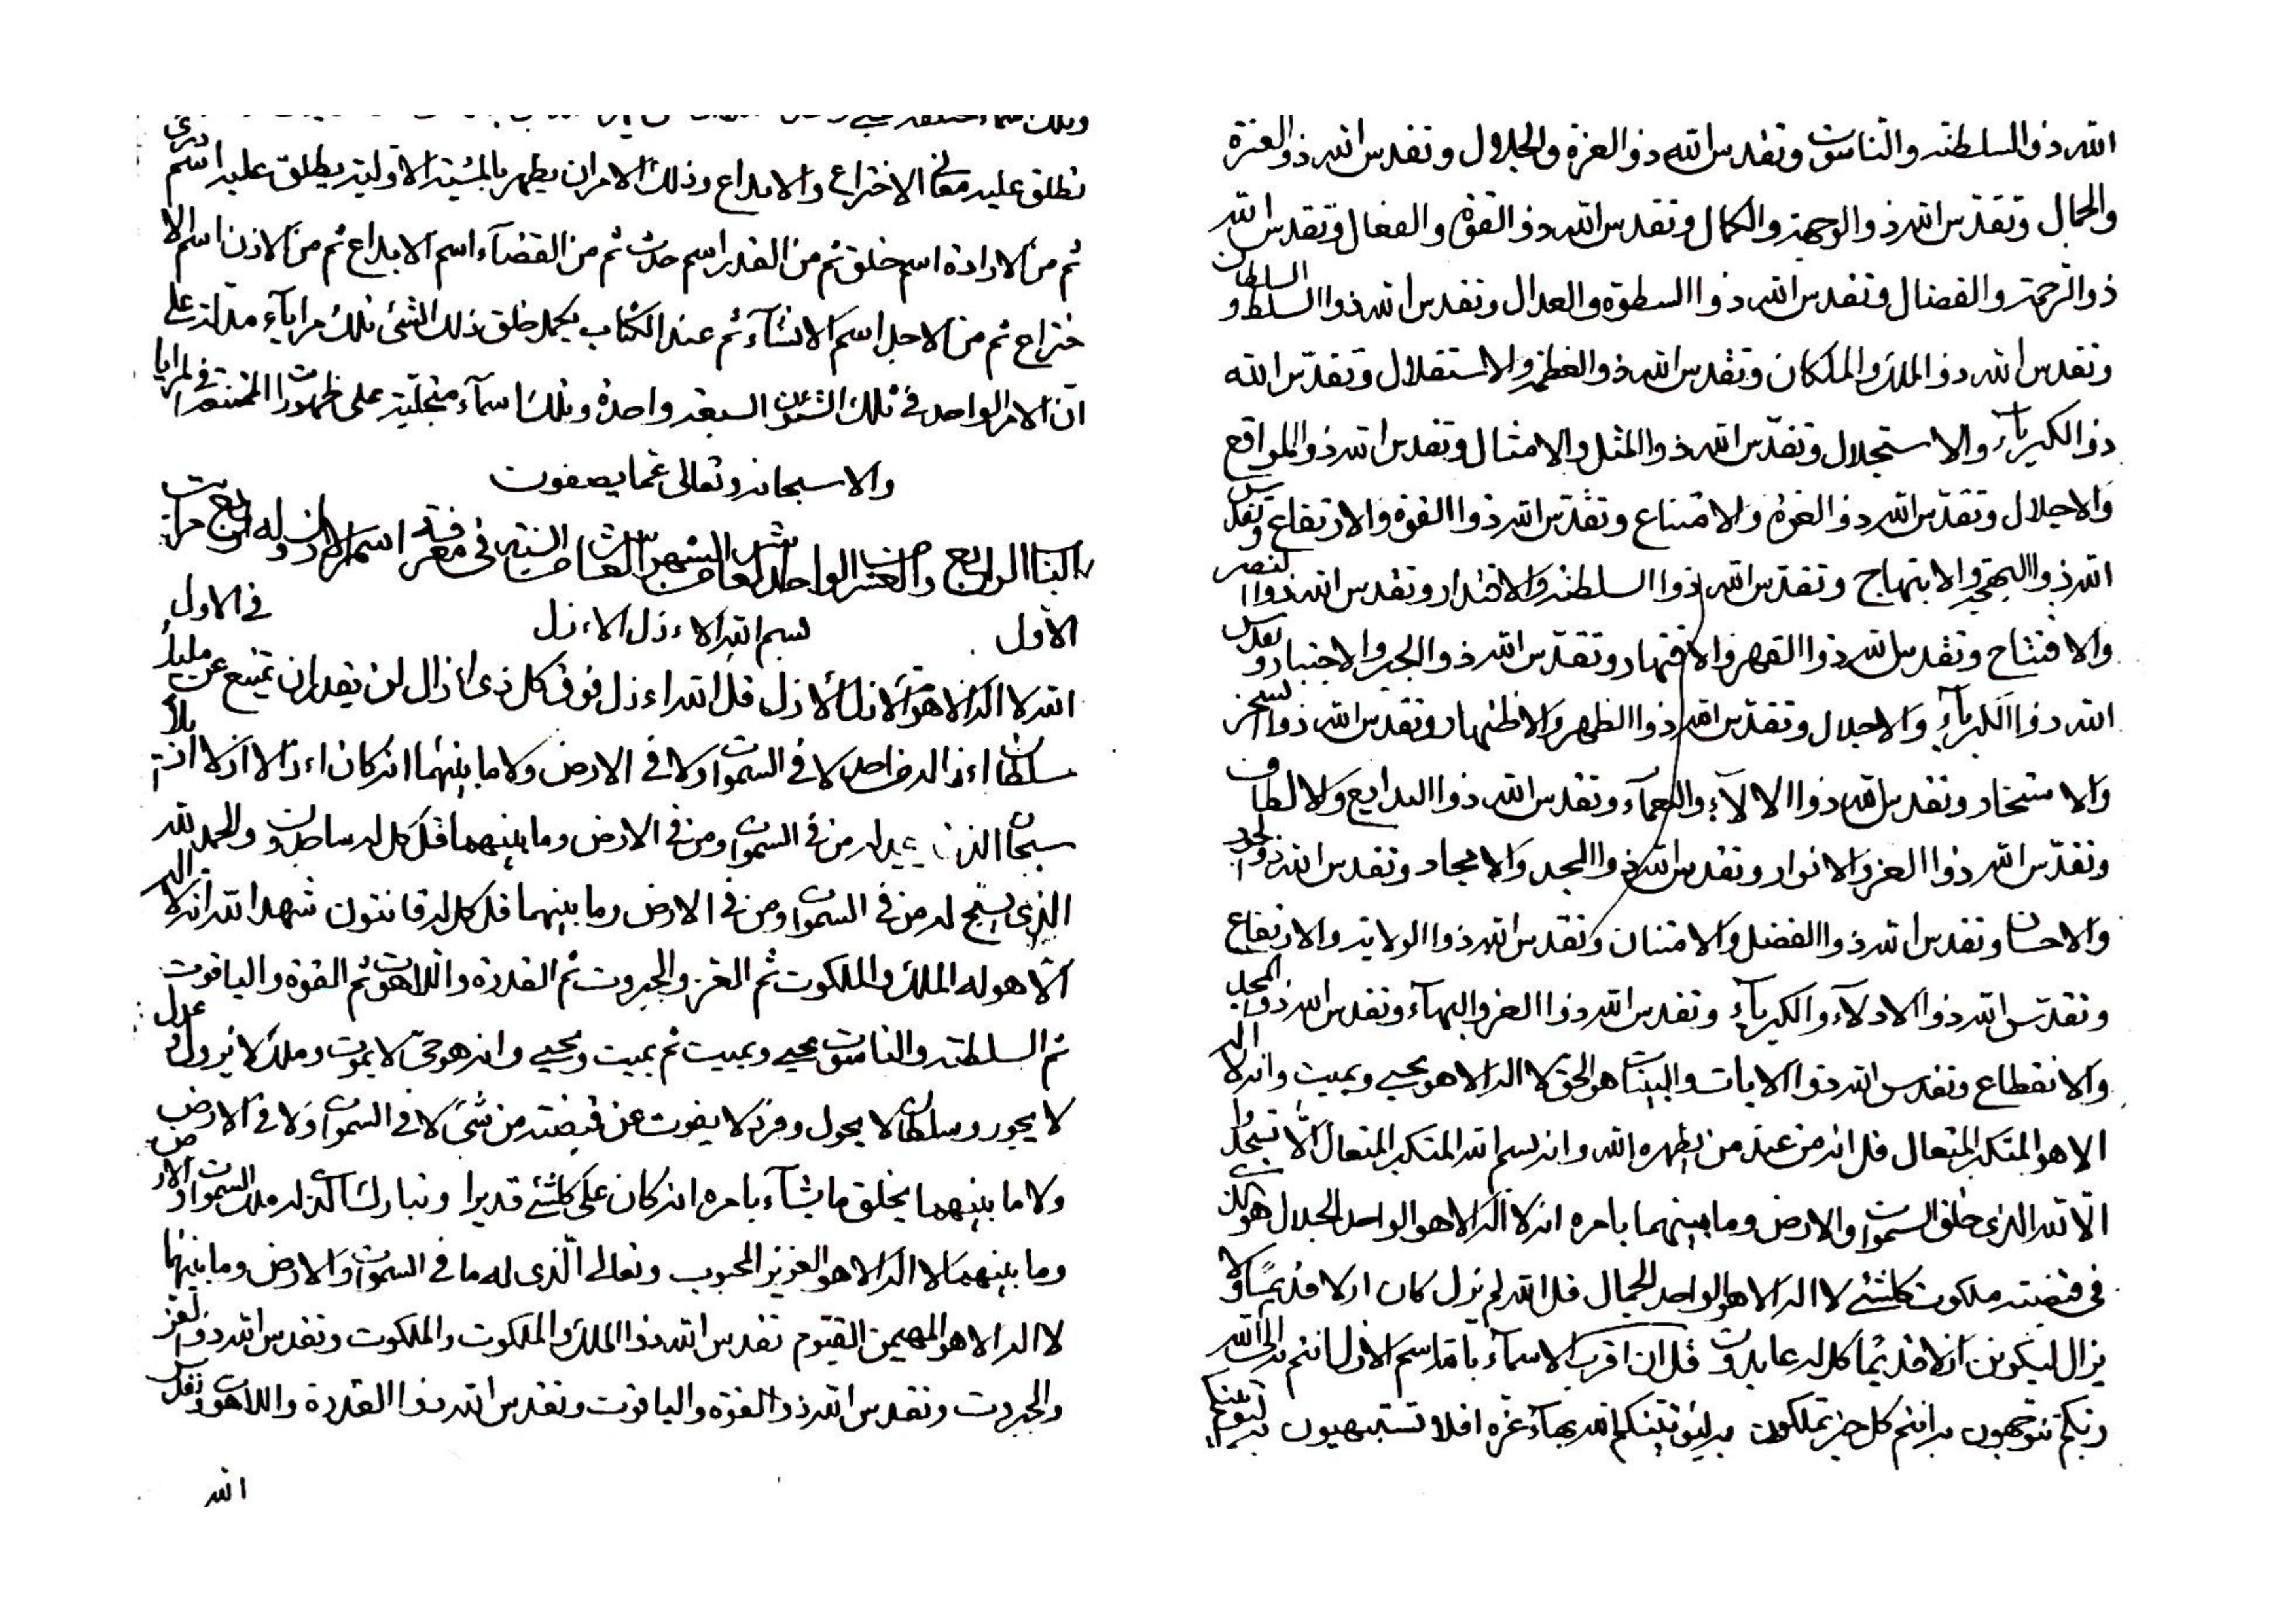 نطلق عليه معانى الاختراع والابداع وذلك الامر ان يظهر بالمشية الاولية يطلق عليه اسم
ثم من الارادة اسم خلق ثم من القدر اسم حدث ثم من القضآء اسم الابداع ثم من الاذن اسم الا
ختراع ثم من الاجل اسم الانشآء ثم عند الكتاب يكمل خلق ذلك الشئ تلك مرايآء مدلة على
ان الامر الواحد فى تلك الشئون السبعة واحدة وتلك اسمآء متجلية على ظهورات الممتنعة فى المرايا
والا سبحانه وتعالى عما يصفون
الباب الرابع والعشر الواحد العاشر الشهر الثامن السنة فى معرفة اسم الازل وله اربع مراتب
الاول بسم الله الاءزل الاءزل فى الاول
الله لا اله الا هو الازل الازل قل الله اءزل فوق كل ذى ازال لن يقدر ان يمتنع عن مليك
سلطان اءزاله من احد لا فى السموات ولا فى الارض ولا ما بينهما انه كان اءزالا ازلا ازيلا
سبحان الذى يسجد له من فى السموات ومن فى الارض وما بينهما قل كل له ساجدون والحمد لله
الذى يسبح له من فى السموات ومن فى الارض وما بينهما قل كل له قانتون شهد الله انه لا اله
الا هو له الملك والملكوت ثم العز والجبروت ثم القدرة واللاهوت ثم القوة والياقوت
ثم السلطنة والناسوت يحيى ويميت ثم يميت ويحيى وانه هو حى لا يموت وملك لا يزول وعدل
لا يجور وسلطان لا يحول وفرد لا يفوت عن قبضته من شئ لا فى السموات ولا فى الارض
ولا ما بينهما يخلق ما يشآء بامره انه كان على كلشئ قديرا وتبارك الذى له ملك السموات والارض
وما بينهما لا اله الا هو العزيز المحبوب وتعالى الذى له ما فى السموات والارض وما بينهما
لا اله الا هو المهيمن القيوم تقدس الله ذو الملك والملكوت والملكوت وتقدس الله ذو العز
والجبروت وتقدس الله ذو القوة والياقوت وتقدس الله ذوا القدرة واللاهوت وتقدس
الله
الله ذو السلطنة والناسوت وتقدس الله ذو العزة والجلال وتقدس الله ذو العزة
والجمال وتقدس الله ذو الوجهة والكمال وتقدس الله ذو القوة والفعال وتقدس الله
ذو الرحمة والفضال وتقدس الله ذوا السطوة والعدال وتقدس الله ذوا السلط والسلطان
وتقدس الله ذو الملك والملكان وتقدس الله ذو العظمة والاستقلال وتقدس الله
ذو الكبريآء والاستجلال وتقدس الله ذوا المثل والامثال وتقدس الله ذو المواقع
والاجلال وتقدس الله ذو العزة والامتناع وتقدس الله ذوا القوة والارتفاع وتقدس
الله ذوا البهجة والابتهاج وتقدس الله ذوا السلطنة والاقتدار وتقدس الله ذوا النصر
والافتتاح وتقدس الله ذوا القهر والاقتهار وتقدس الله ذو الجبر والاجتبار وتقدس
الله ذوا الكبريآء والاجلال وتقدس الله ذوا الظهر والاظتهار وتقدس الله ذوا السخر
والاستخار وتقدس الله ذوا الالآء والنعمآء وتقدس الله ذوا البدايع والالطاف
وتقدس الله ذوا العز والانوار وتقدس الله ذوا المجد والامجاد وتقدس الله ذو الجود
والاحسان وتقدس الله ذوا الفضل والامتنان وتقدس الله ذوا الولاية والارتفاع
وتقدس الله ذوا الادلآء والكبريآء وتقدس الله ذوا العز والبهآء وتقدس الله ذو المجد
والانقطاع وتقدس الله ذوا الايات والبينات هو الحق لا اله الا هو يحيى ويميت وانه لا اله
الا هو المتكبر المتعال قل انه من عند من يظهره الله وانه بسم الله المتكبر المتعال الا تسجدوا
الا لله الذى خلق السموات والارض وما بينهما بامره انه لا اله الا هو الواحد الجلال هو الذى
فى قبضته ملكوت كلشئ لا اله الا هو الواحد الجمال قل الله لم يزل كان ازلا قديما ولا
يزال ليكونن ازلا قديما كل له عابدون قل ان اقرب الاسمآء بالله اسم الازل انتم به الى الله
ربكم تتوجهون به انتم كل خير تملكون به ليؤتينكم الله بهآء عزه افلا تستبهيون